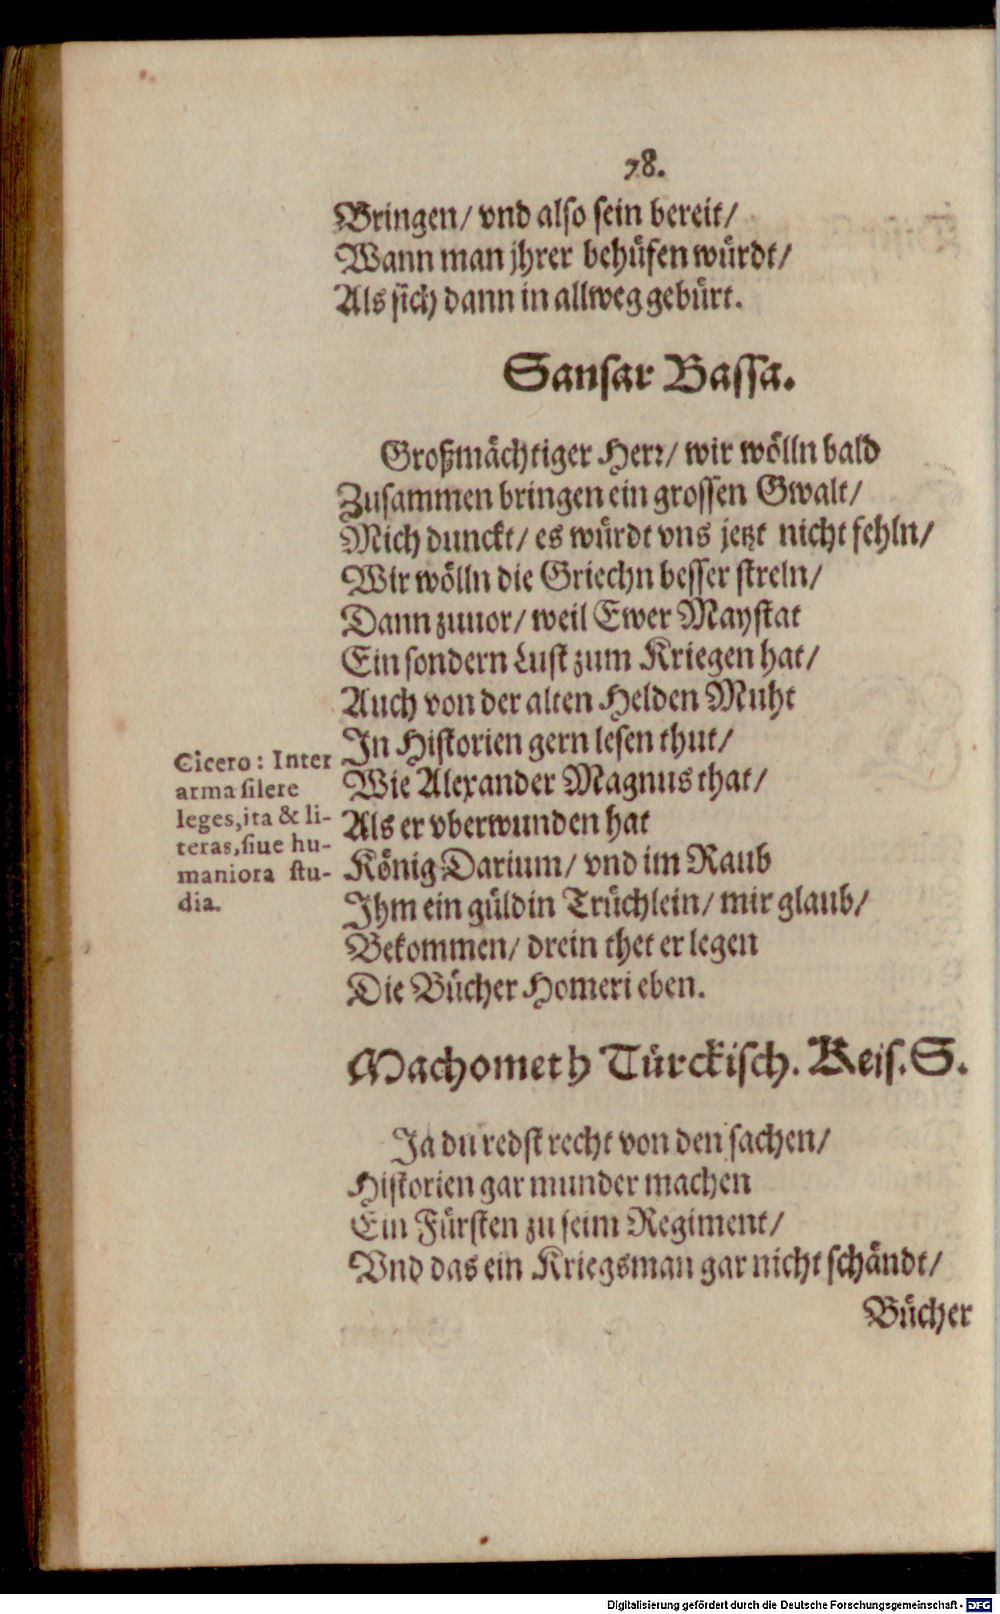 78.
Bringen/ vnd also sein bereit/
Wann man jhrer behuͤfen wuͤrdt/
Als sich dann in allweg gebuͤrt.
Sansar Bassa.
Großmaͤchtiger Herr/ wir woͤlln bald
Zusammen bringen ein grossen Gwalt/
Mich dunckt/ es wuͤrdt vns jetzt nicht fehln/
Wir woͤlln die Griechn besser streln/
Dann zuuor/ weil Ewer Maystat
Ein sondern Lust zum Kriegen hat/
Auch von der alten Helden Muht
In Historien gern lesen thut/
Wie Alexander Magnus that/
Als er vberwunden hat
Koͤnig Darium/ vnd im Raub
Ihm ein guͤldin Truͤchlein/ mir glaub/
Bekommen/ drein thet er legen
Die Buͤcher Homeri eben.
Cicero: Inter
arma silere
leges, ita & li-
teras, siue hu-
maniora stu-
dia.
Machometh Tuͤrckisch. Keis. S.
Ja du redst recht von den sachen/
Historien gar munder machen
Ein Fuͤrsten zu seim Regiment/
Vnd das ein Kriegsman gar nicht schaͤndt/
Buͤcher
Digitalisierung gefördert durch die Deutsche Forschungsgemeinschaft - DFG